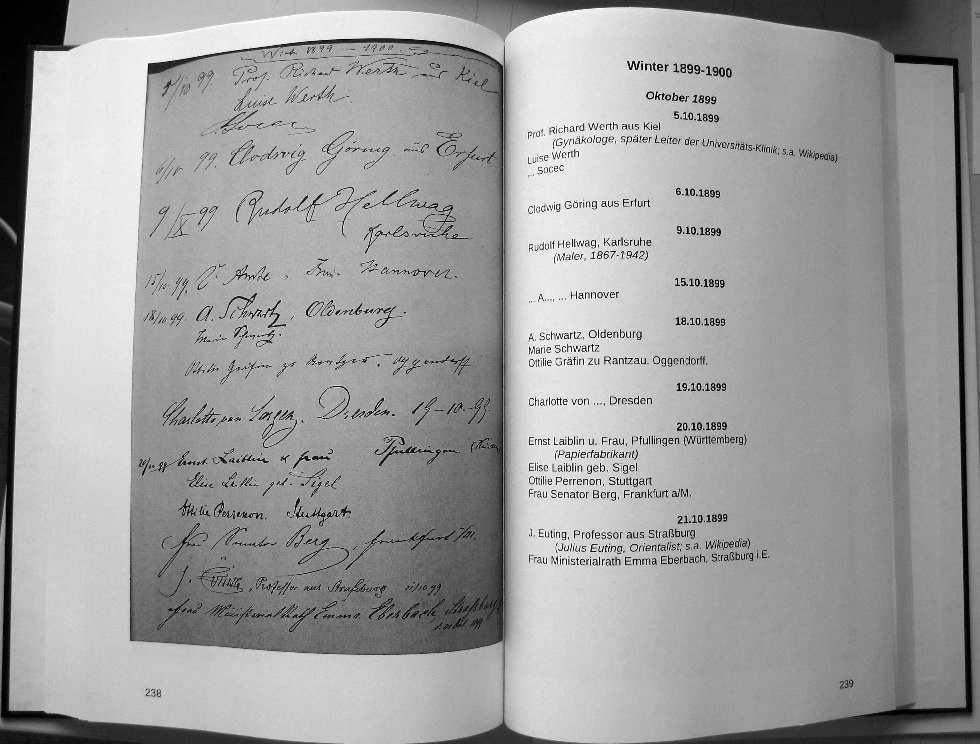 Wint 1899 – 1900
5/10 99. Prof. Richard Werth aus Kiel
Luise Werth.
Socec
6/10. 99. Clodwig Göring aus Erfurt
9/X 99 Rudolf Hellwag
Karlsruhe
15/10. 99. Hannover.
18/10 99. A. Schwartz, Oldenburg.
Marie Schwartz.
Charlotte von Dresden. 19-10-99.
20/10 99 Ernst Laiblin u frau Pfullingen
Elise Laiblin geb. Sigel
Ottilie Perrenon. Stuttgart
frau Senator Berg, frankfurt a/M.
J. Euting, Professor aus Straßburg 21/10 99
frau Ministerialrath Emma Eberbach, Straßburg
238
Winter 1899-1900
Oktober 1899
5.10.1899
Prof. Richard Werth aus Kiel
(Gynäkologe, später Leiter der Universitäts-Klinik; s.a. Wikipedia)
Luise Werth
... Socec
6.10.1899
Clodwig Göring aus Erfurt
9.10.1899
Rudolf Hellwag, Karlsruhe
(Maler, 1867-1942)
15.10.1899
... A..., ... Hannover
18.10.1899
A. Schwartz, Oldenburg
Marie Schwartz
Ottilie Gräfin zu Rantzau. Oggendorff.
19.10.1899
Charlotte von ..., Dresden
20.10.1899
Ernst Laiblin u. Frau, Pfullingen (Württemberg)
(Papierfabrikant)
Elise Laiblin geb. Sigel
Ottilie Perrenon, Stuttgart
Frau Senator Berg, Frankfurt a/M.
21.10.1899
J. Euting, Professor aus Straßburg
(Julius Euting, Orientalist; s.a. Wikipedia)
Frau Ministerialrath Emma Eberbach, Straßburg i.E.
239